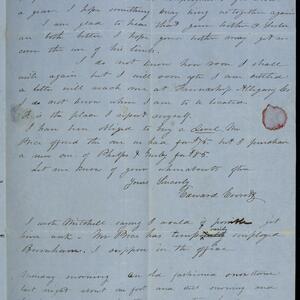 a year. I hope something may bring us together again
I am glad to hear that your brother & sister
are both better I hope your mother may get so
soon the use of his limbs.
I do not know how soon I shall
write again but I will soon after I am settled
a letter will reach me at Friendship Allegany Co
I do not know when I am to be located.
It is the place I expect myself.
I have been obliged to buy a Level Mr
Price offered the one us had for but I purchase
a new one of Phelps & Gurley for
Let me know of your whereabouts often
Yours Sincerely
Edward
I wrote Mitchell saying I would if get
him work. Mr Price has employed
Burnham. I suppose in the office.
Monday morning old fashioned snow storm
last night about one foot and this morning and